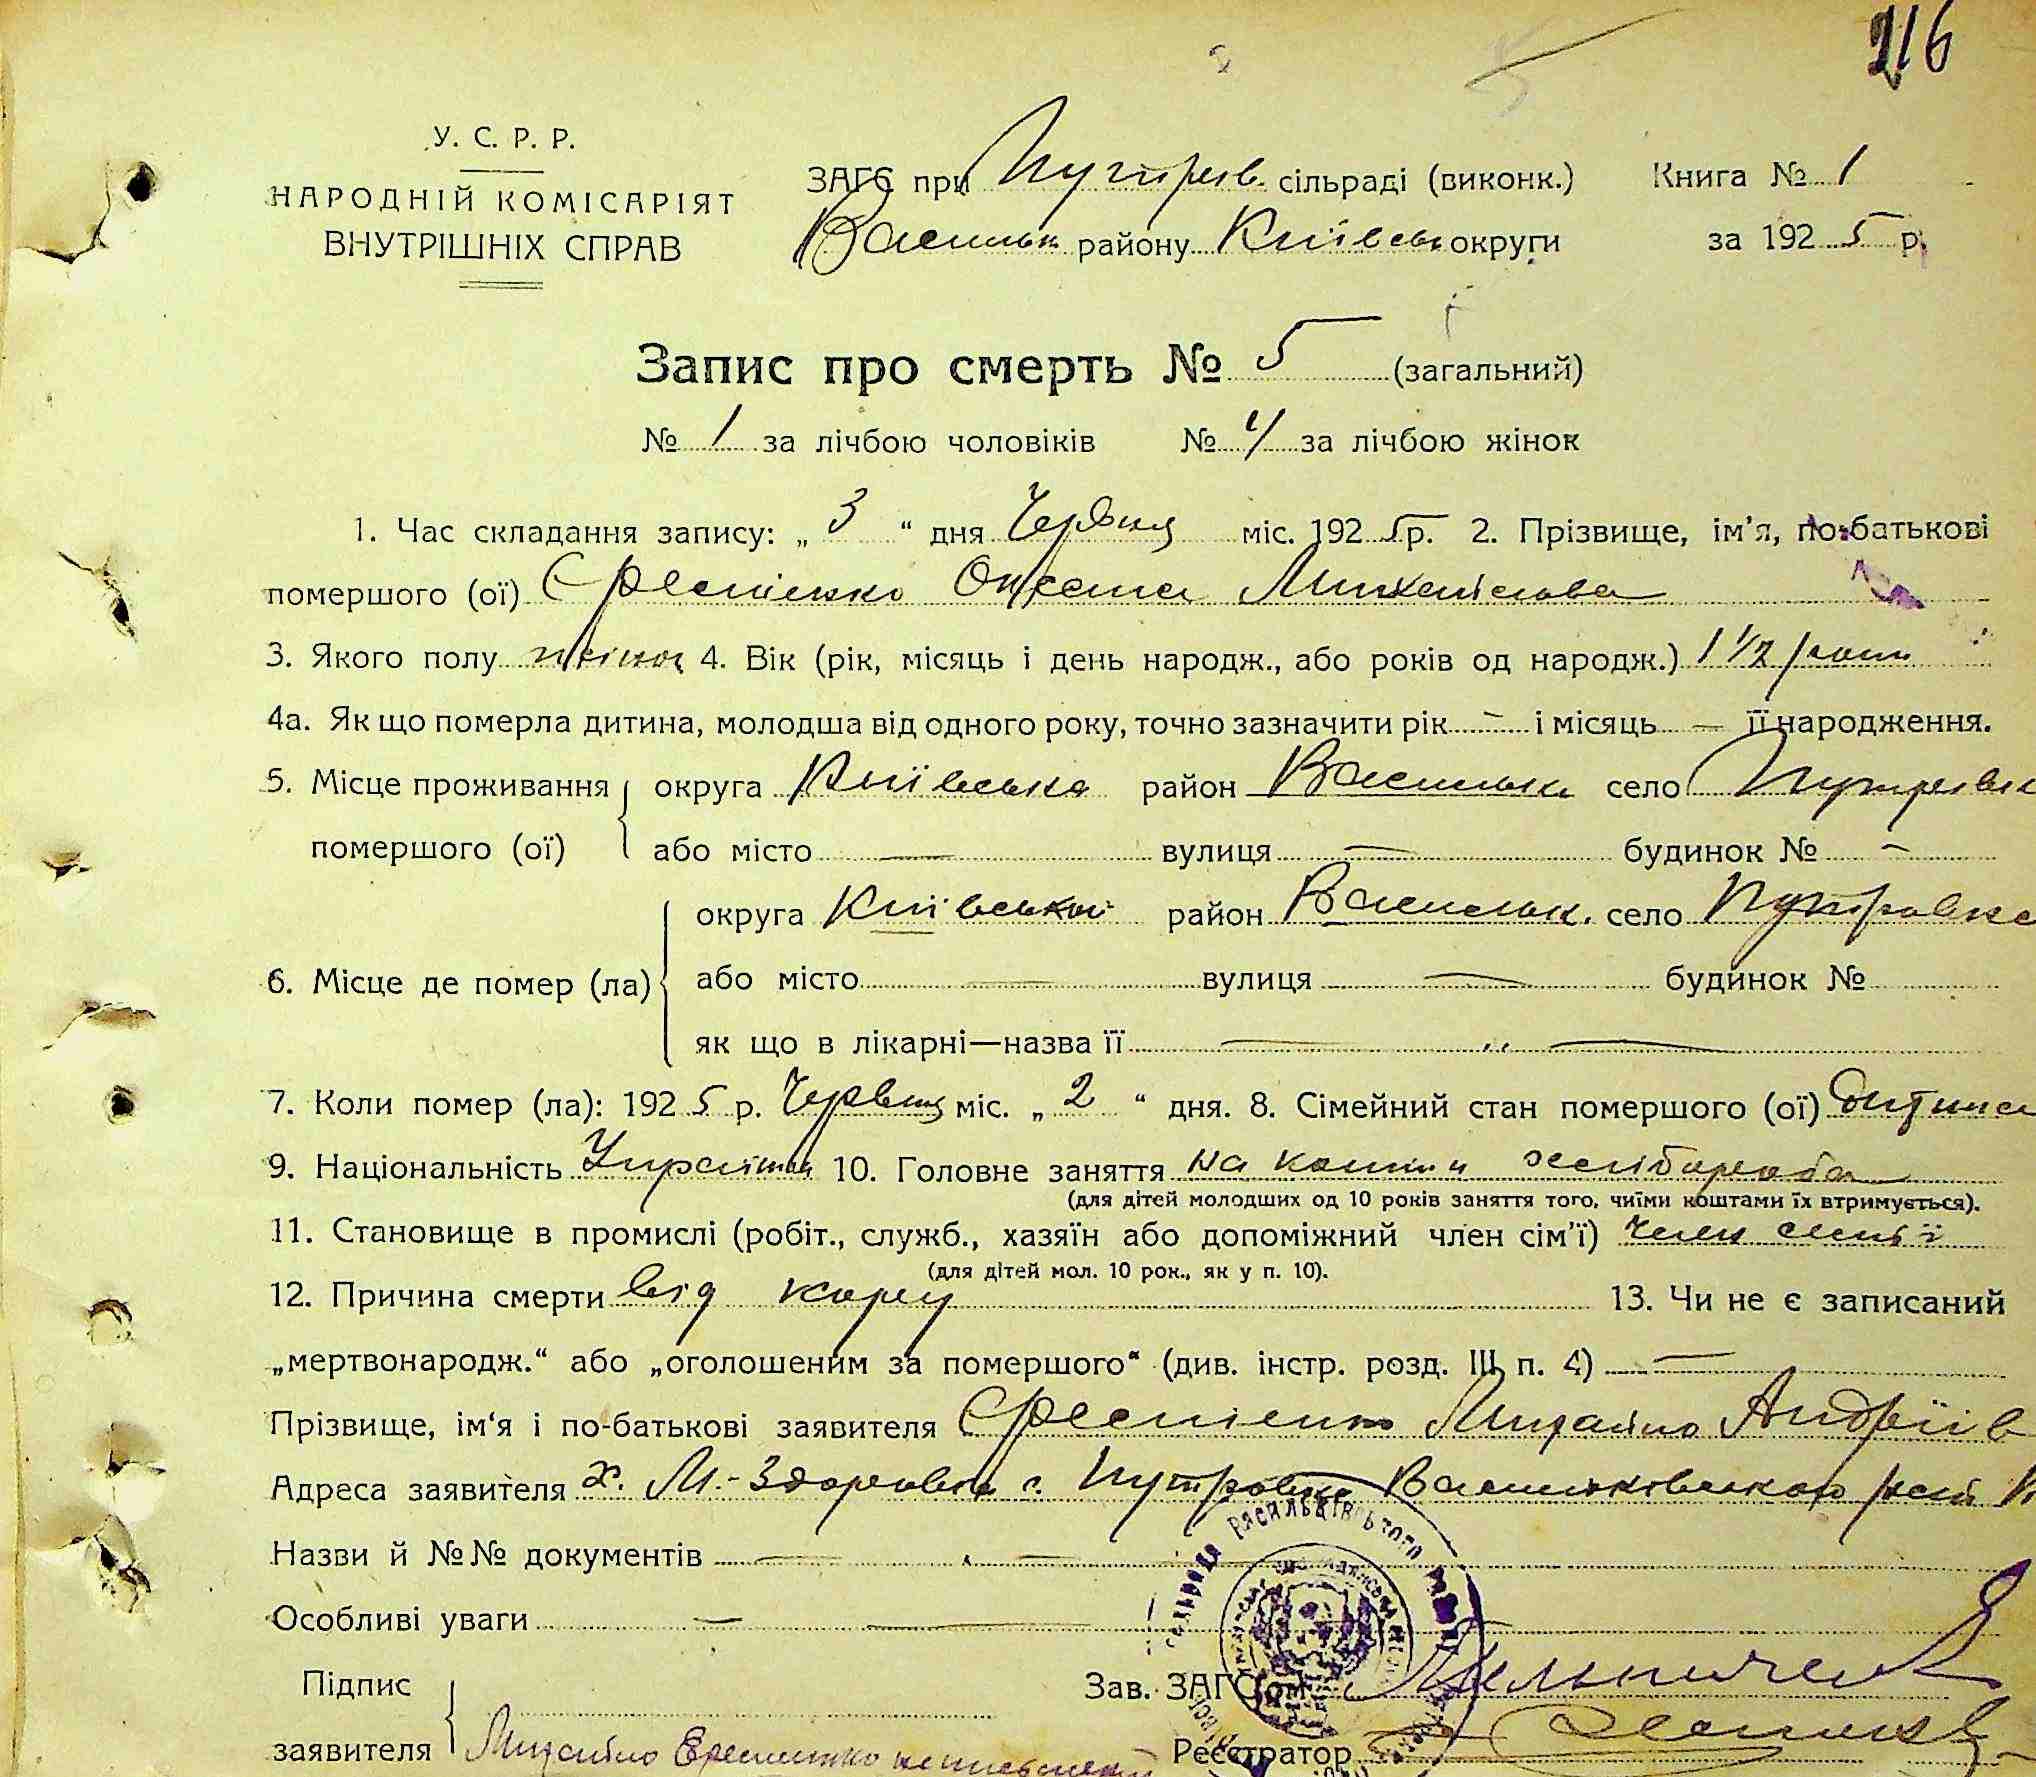 216
У. С. Р. Р.
НАРОДНІЙ КОМІСАРІЯТ
ВНУТРІШНІХ СПРАВ
ЗАГС при Путрів. сільраді (виконк.) Книга № 1
Васильк району Київськ округи за 1925 р.
Запис про смерть № 5 (загальний)
№ 1 за лічбою чоловіків № 4 за лічбою жінок
1. Час складання запису: „ 3 “ дня Червня міс. 1925 р. 2. Прізвище, ім'я, по-батькові
помершого (ої) Оксана Михайлова
3. Якого полу жіноч 4. Вік (рік, місяць і день народж., або років од народж.) 1 1/2 роки
4а. Як що померла дитина, молодша від одного року, точно зазначити рік — і місяць — її народження.
5. Місце проживання округа Київська район Васильк село Путрівка
помершого (ої) або місто — вулиця — будинок № —
округа Київської район Васильк. село Путровка
6. Місце де помер (ла) або місто — вулиця — будинок №
як що в лікарні—назва її —
7. Коли помер (ла): 1925 р. Червня міс. „ 2 “ дня. 8. Сімейний стан помершого (ої) дитина
9. Національність Україн 10. Головне заняття на кошти хлібороба
(для дітей молодших од 10 років заняття того, чиїми коштами їх втримується).
11. Становище в промислі (робіт., служб., хазяїн або допоміжний член сім'ї) член семії
(для дітей мол. 10 рок., як у п. 10).
12. Причина смерти від кору 13. Чи не є записаний
„мертвонародж.“ або „оголошеним за помершого“ (див. інстр. розд. III п. 4) —
Прізвище, ім'я і по-батькові заявителя Михайло Андріїв
Адреса заявителя х. М.-Здоровка с. Путровка Васильківського рай К
Назви й №№ документів —
Особливі уваги —
Підпис Зав. ЗАГСом
заявителя Михайло Реєстратор